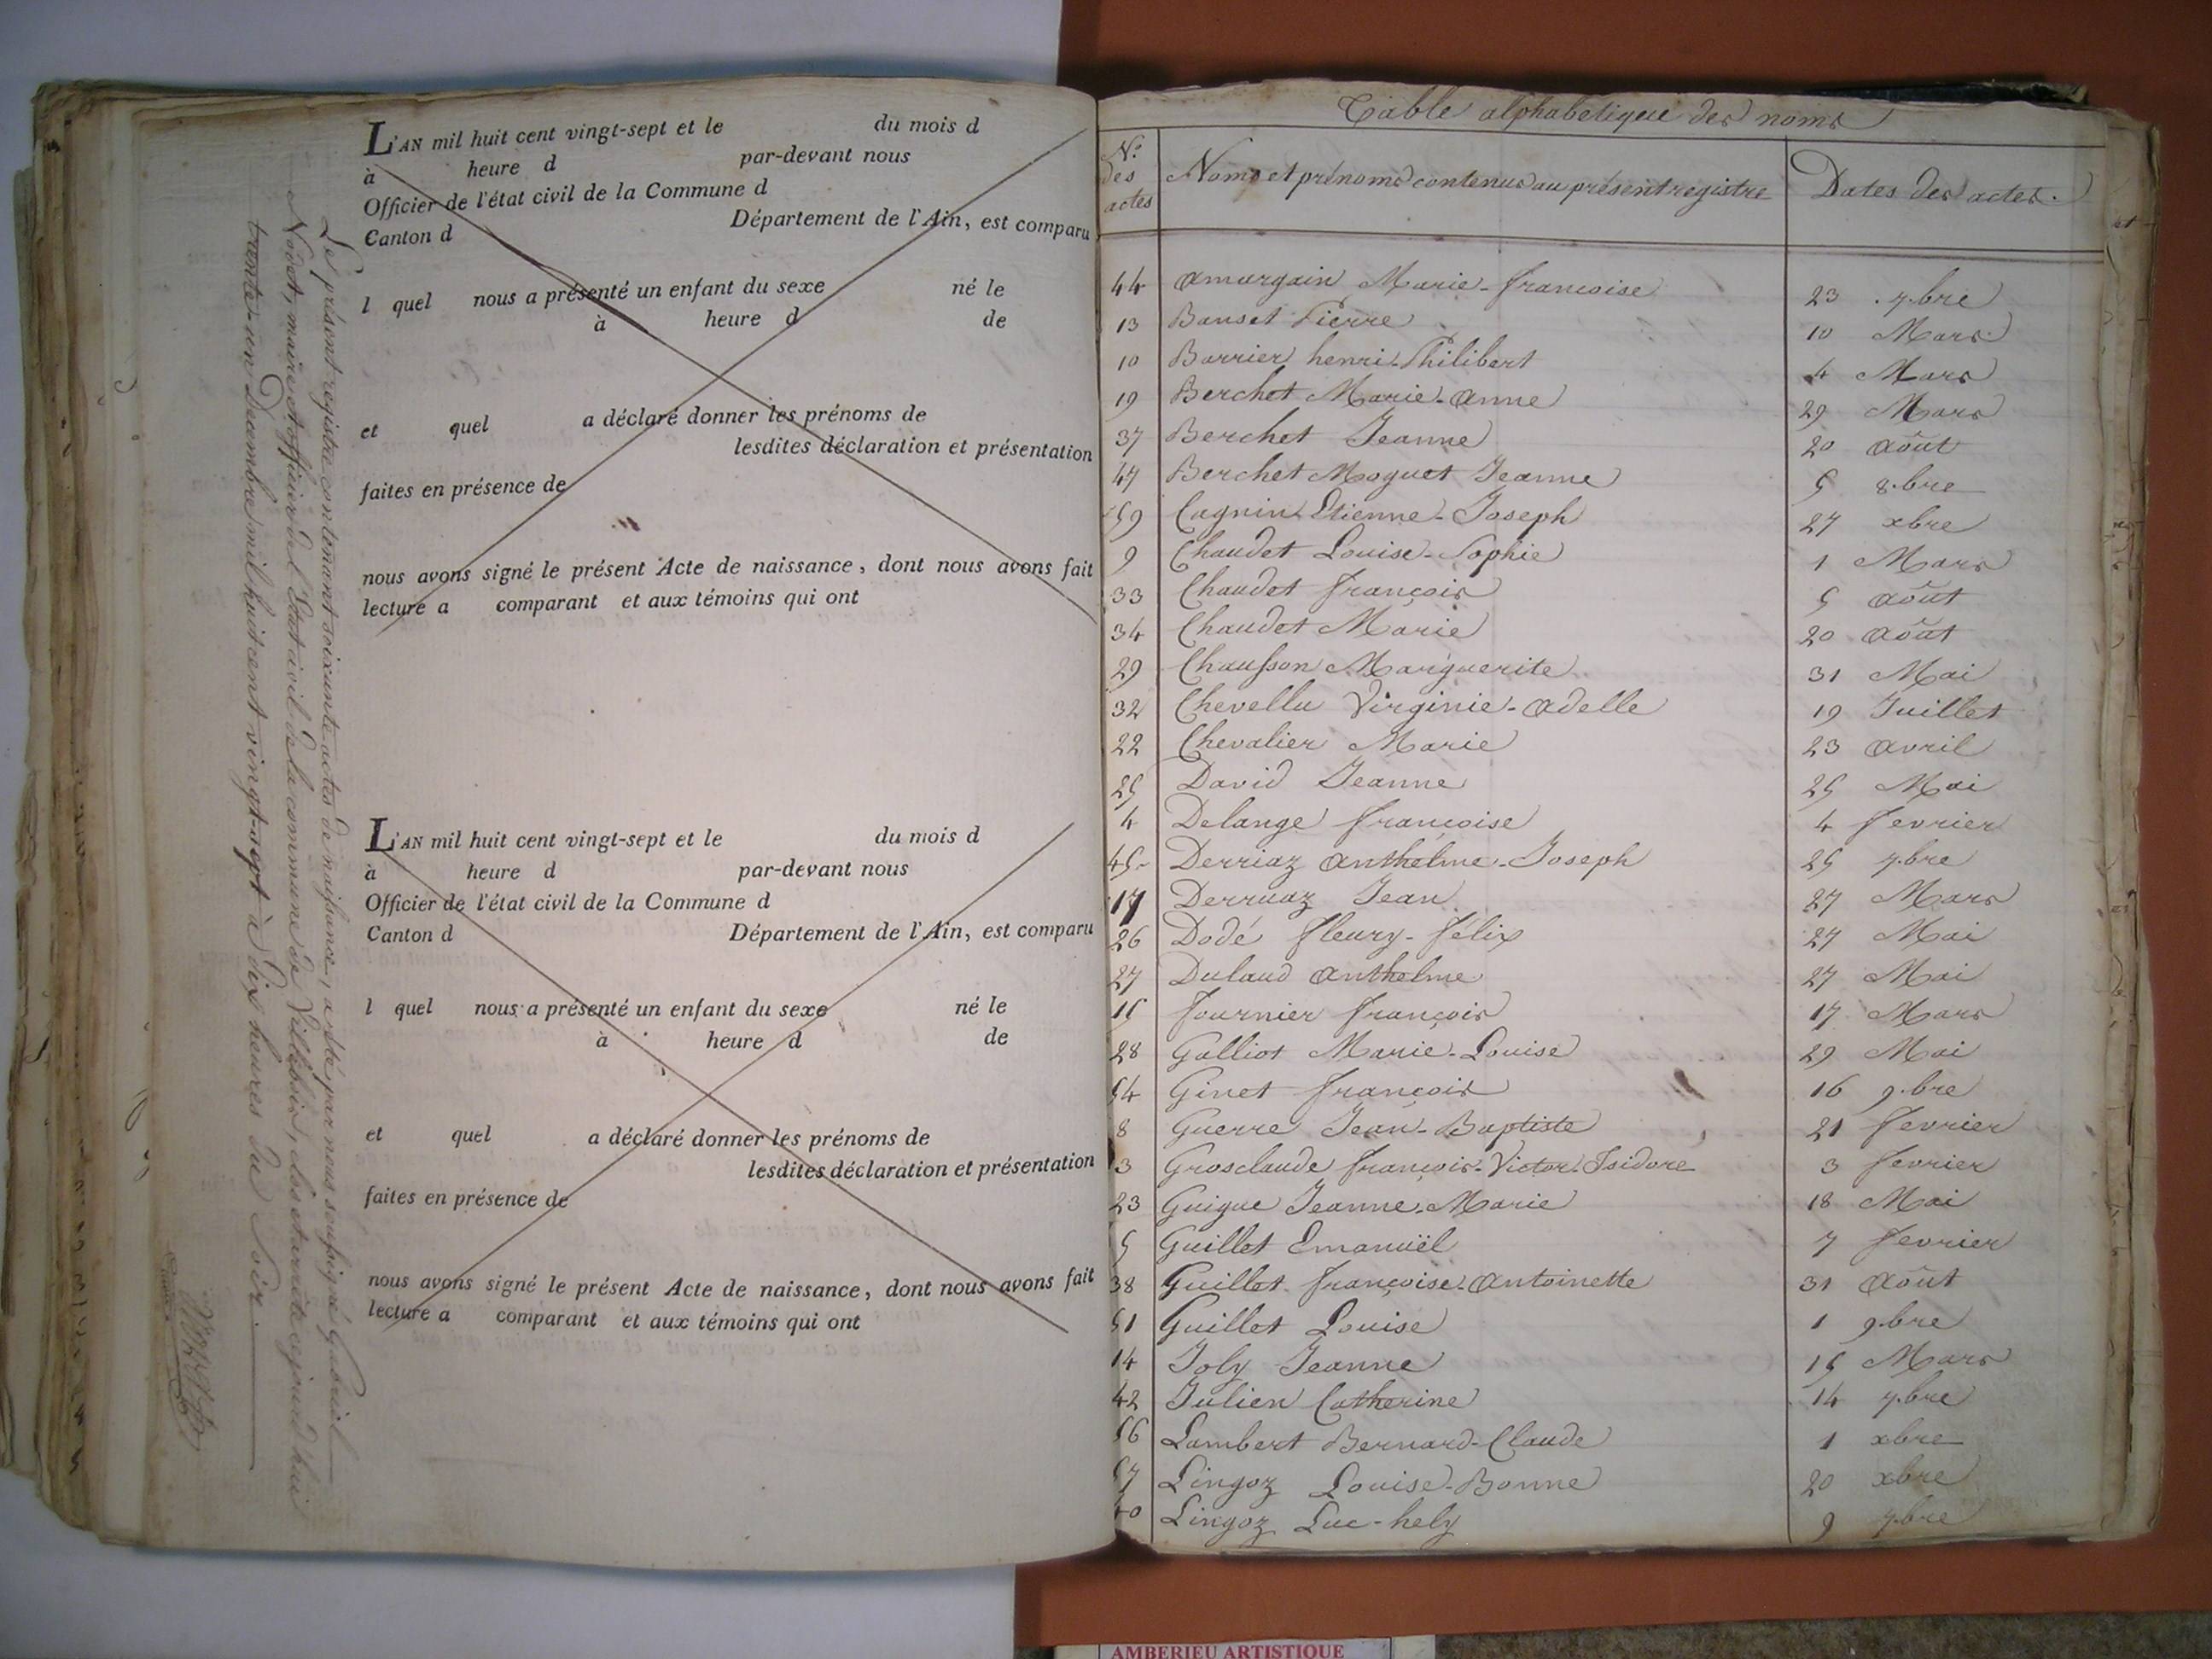 L'AN mil huit cent vingt-sept et le du mois d
à heure d par-devant nous
Officier de l'état civil de la Commune d
Canton d Département de l'Ain, est comparu
l quel nous a présenté un enfant du sexe né le
à heure d de
et quel a déclaré donner les prénoms de
lesdites déclaration et présentation
faites en présence de
nous avons signé le présent Acte de naissance, dont nous avons fait
lecture a comparant et aux témoins qui ont
L'AN mil huit cent vingt-sept et le du mois d
à heure d par-devant nous
Officier de l'état civil de la Commune d
Canton d Département de l'Ain, est comparu
l quel nous a présenté un enfant du sexe né le
à heure d de
et quel a déclaré donner les prénoms de
lesdites déclaration et présentation
faites en présence de
nous avons signé le présent Acte de naissance, dont nous avons fait
lecture a comparant et aux témoins qui ont
Le présent registre contenant soixante actes de naissance, a été par nous soussigné Gabriel
Nodet, maire et officier de l'Etat civil de la commune de Villebois, clos et arrêté ce jourd'hui
trente-un Decembre mil huit cent vingt-sept à dix heures du Soir
Table alphabetique des noms
N.º des actes Noms et prénoms contenus au présent registre Dates des actes.
44 Amargain Marie-françoise 23 7.bre
13 Banset Pierre 10 Mars
10 Barrier henri-Philibert 4 Mars
19 Berchet Marie-Anne 29 Mars
37 Berchet Jeanne 20 Août
47 Berchet Moguet Jeanne 5 8.bre
59 Cagnin Etienne-Joseph 27 xbre
9 Chaudet Louise-Sophie 1 Mars
33 Chaudet françois 5 Août
34 Chaudet Marie 20 Août
29 Chausson Marguerite 31 Mai
32 Chevellu Virginie-Adelle 19 Juillet
22 Chevalier Marie 23 Avril
25 David Jeanne 25 Mai
4 Delange françoise 4 fevrier
45 Derriaz Anthelme-Joseph 25 7.bre
17 Derruaz Jean 27 Mars
26 Dodé fleury-félix 27 Mai
27 Dulaud Anthelme 27 Mai
15 fournier françois 17 Mars
28 Galliot Marie-Louise 29 Mai
54 Ginet françois 16 9.bre
8 Guerre Jean-Baptiste 21 fevrier
3 Grosclaude françois-Victor-Isidore 3 fevrier
23 Guigue Jeanne-Marie 18 Mai
5 Guillet Emanuël 7 fevrier
38 Guillet françoise-Antoinette 31 Août
51 Guillet Louise 1 9.bre
14 Joly Jeanne 15 Mars
42 Julien Catherine 14 7.bre
56 Lambert Bernard-Claude 1 xbre
57 Lingoz Louise-Bonne 20 xbre
40 Lingoz Luc-hely 9 7.bre
AMBERIEU ARTISTIQUE